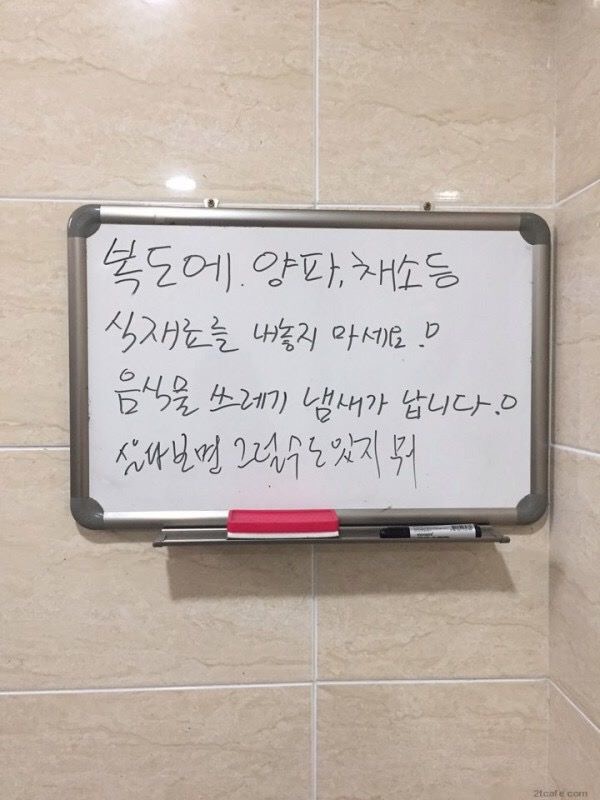 복도에. 양파, 채소등
식재료를 내놓지 마세요.
음식물 쓰레기 냄새가 납니다.
살다보면 그럴수도있지 뭐
2tcafe.com